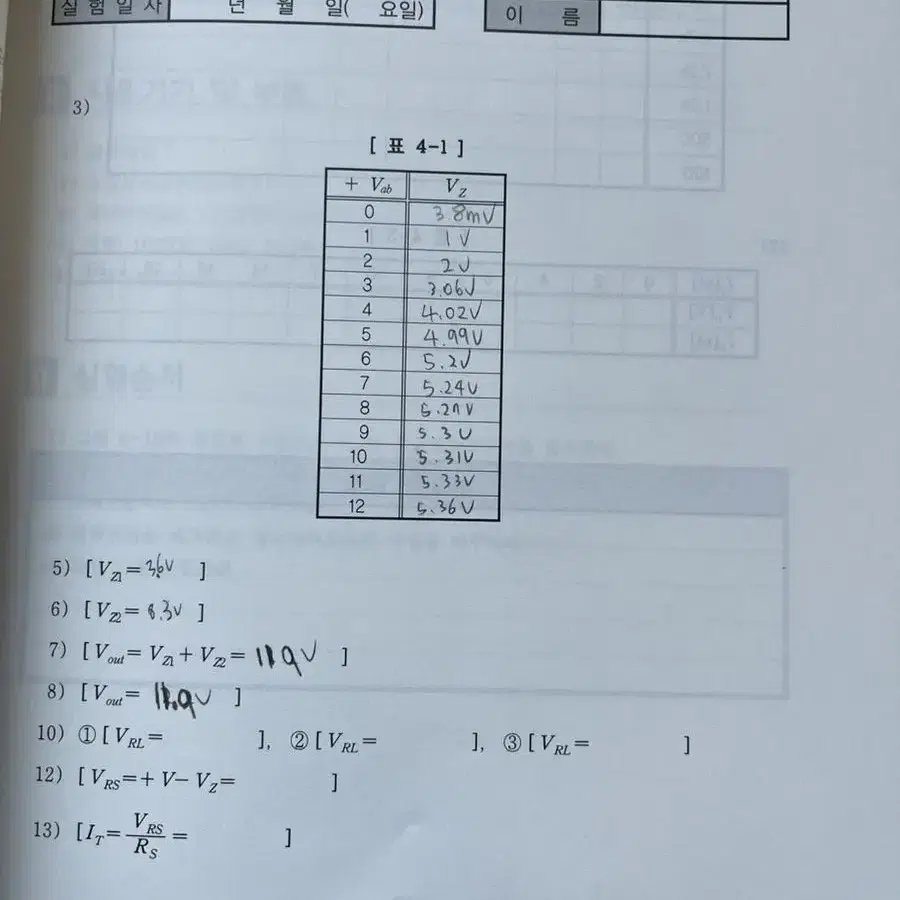 실험일자 년 월 일( 요일) 이 름
3)
[ 표 4-1 ]
+ Vab VZ
0 3.8mV
1 1V
2 2V
3 3.06V
4 4.02V
5 4.99V
6 5.2V
7 5.24V
8 5.27V
9 5.3V
10 5.31V
11 5.33V
12 5.36V
5) [ VZ1= 3.6V ]
6) [ VZ2= 8.3V ]
7) [ Vout= VZ1+ VZ2= 11.9V ]
8) [ Vout= 11.9V ]
10) ① [ VRL= ], ② [ VRL= ], ③ [ VRL= ]
12) [ VRS=+ V- VZ= ]
13) [IT= VRS/RS = ]